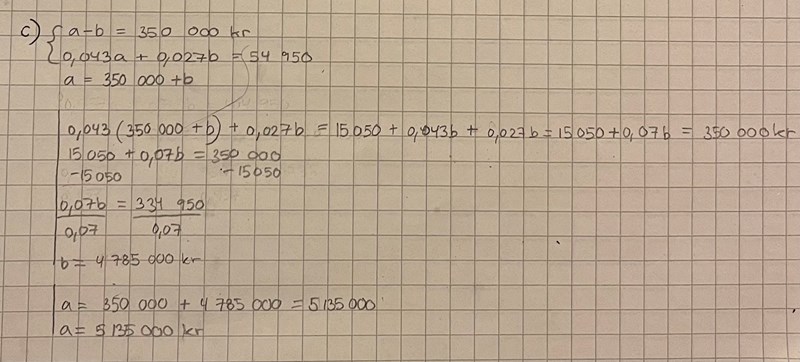 c) { a-b = 350 000 kr
0,043a + 0,027b = 54 950
a = 350 000 +b
0,043 (350 000 +b) + 0,027b = 15 050 + 0,043b + 0,027b = 15 050 + 0,07b = 350 000 kr
15 050 + 0,07b = 350 000
-15050 -15050
0,07b = 334 950
0,07 0,07
b = 4 785 000 kr
a = 350 000 + 4 785 000 = 5 135 000
a = 5 135 000 kr